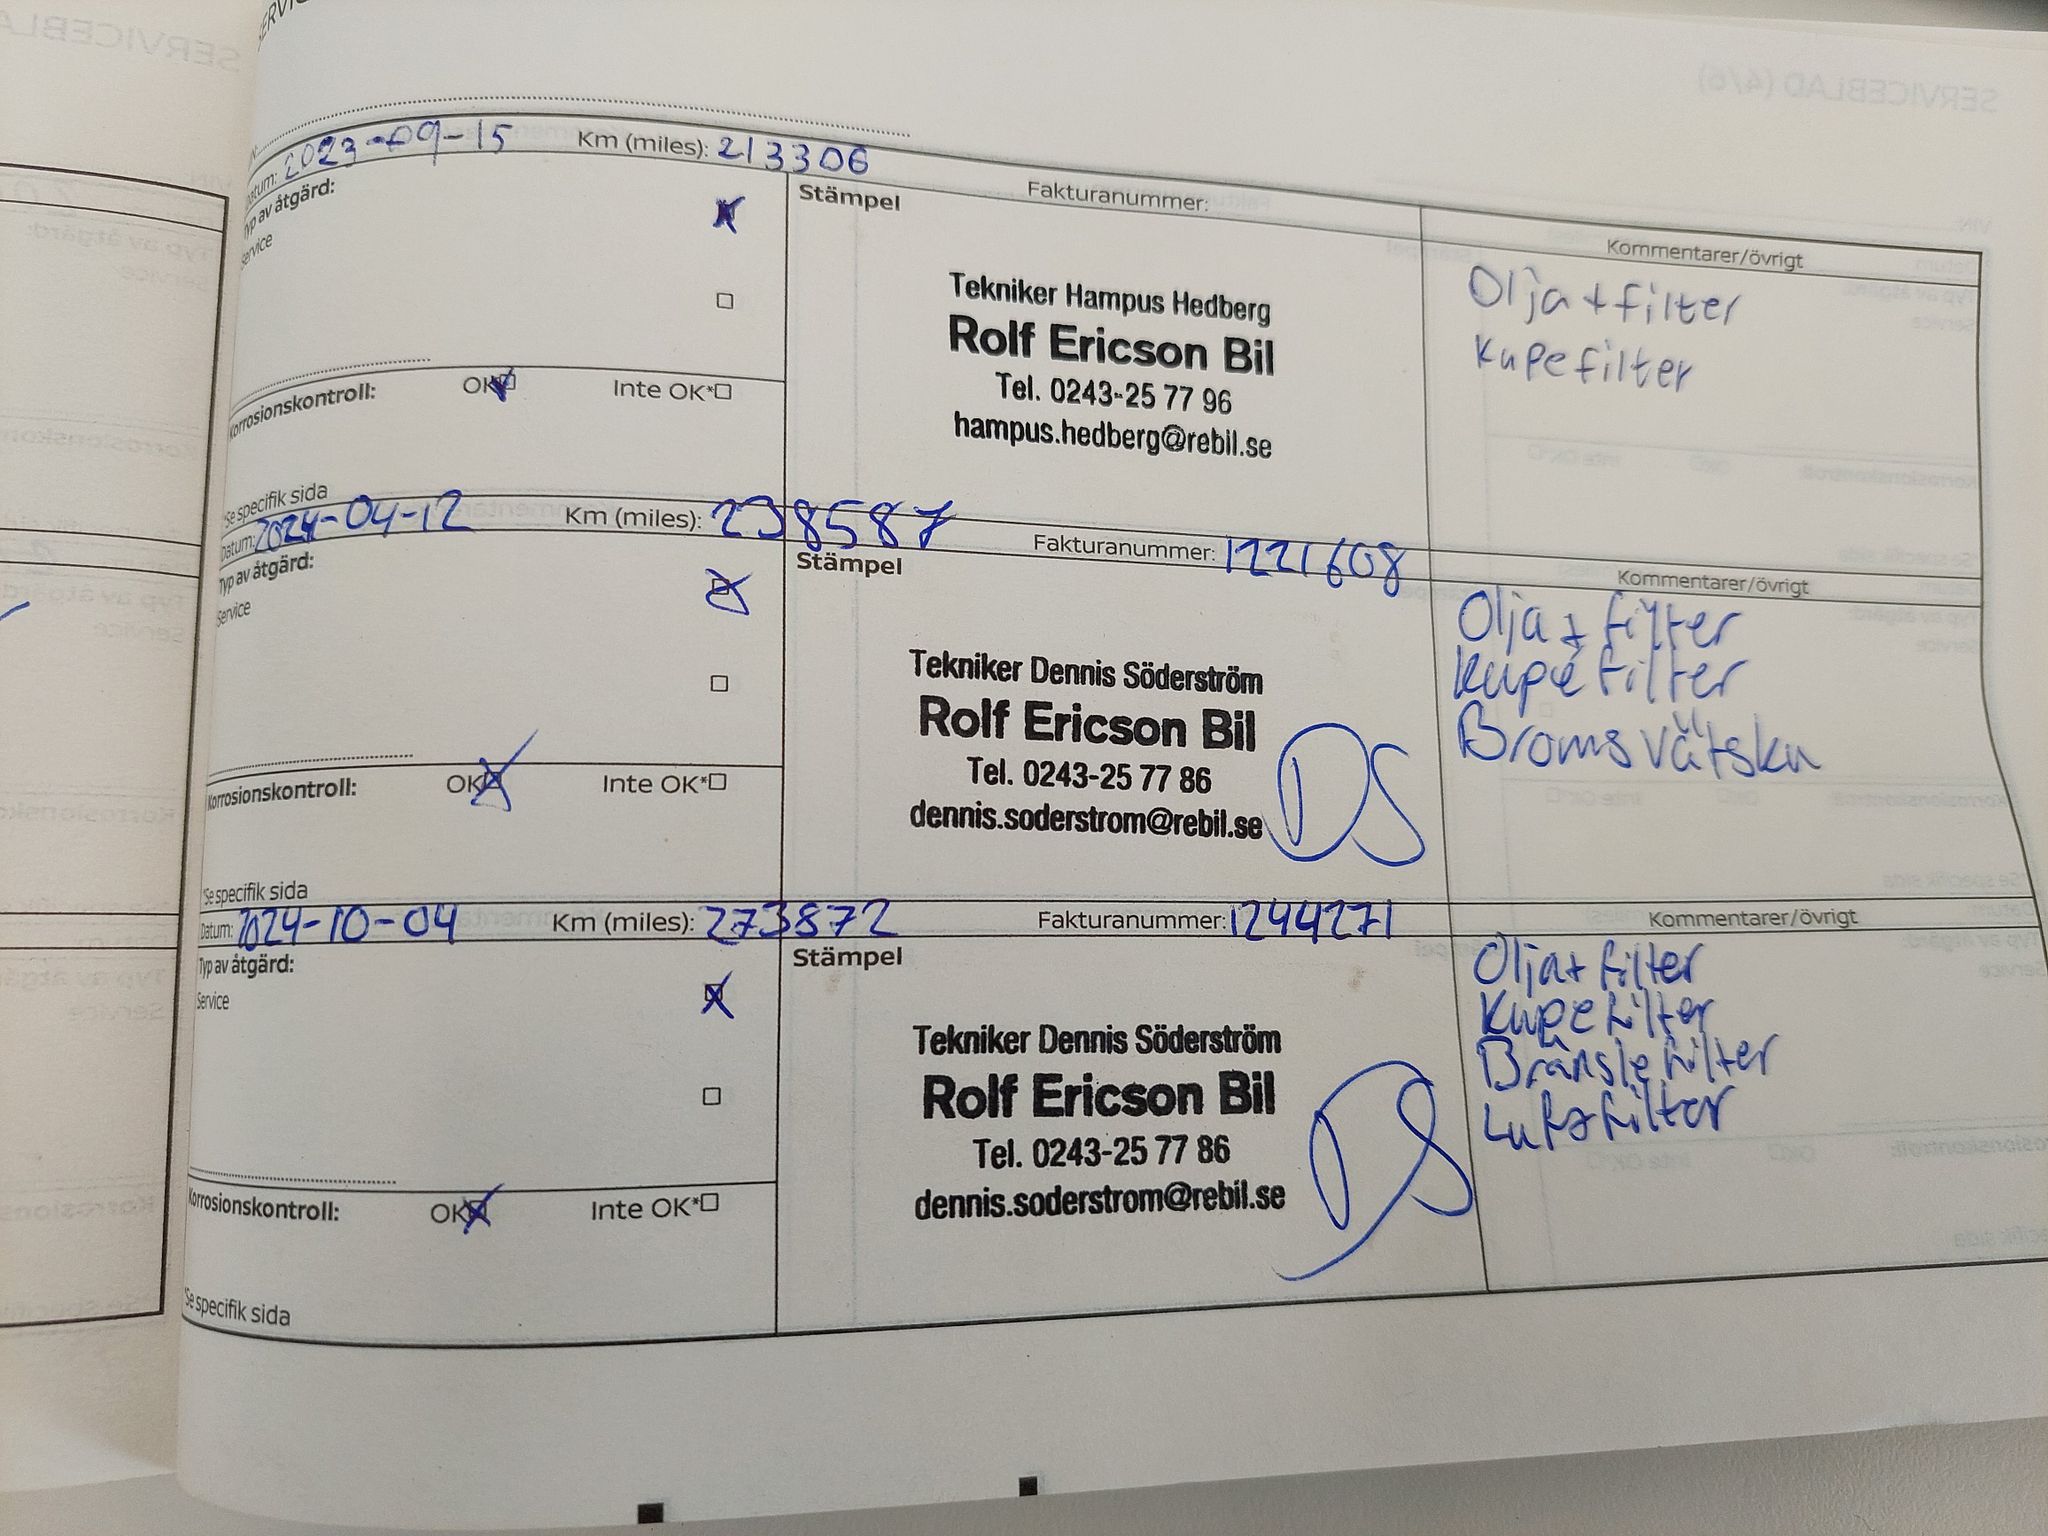 Datum: 2023-09-15 Km (miles): 213306 Fakturanummer:
Typ av åtgärd: Stämpel Kommentarer/övrigt
Service
Tekniker Hampus Hedberg
Rolf Ericson Bil
Tel. 0243-25 77 96
hampus.hedberg@rebil.se
Olja + filter
Kupefilter
Korrosionskontroll: OK Inte OK*
*Se specifik sida
Datum: 2024-04-12 Km (miles): 238587 Fakturanummer: 1221608
Typ av åtgärd: Stämpel Kommentarer/övrigt
Service
Tekniker Dennis Söderström
Rolf Ericson Bil
Tel. 0243-25 77 86
dennis.soderstrom@rebil.se
DS
Olja + filter
Kupéfilter
Broms vätska
Korrosionskontroll: OK Inte OK*
*Se specifik sida
Datum: 2024-10-04 Km (miles): 273872 Fakturanummer: 1244271
Typ av åtgärd: Stämpel Kommentarer/övrigt
Service
Tekniker Dennis Söderström
Rolf Ericson Bil
Tel. 0243-25 77 86
dennis.soderstrom@rebil.se
DS
Olja + filter
Kupefilter
Bränslefilter
Luftfilter
Korrosionskontroll: OK Inte OK*
*Se specifik sida